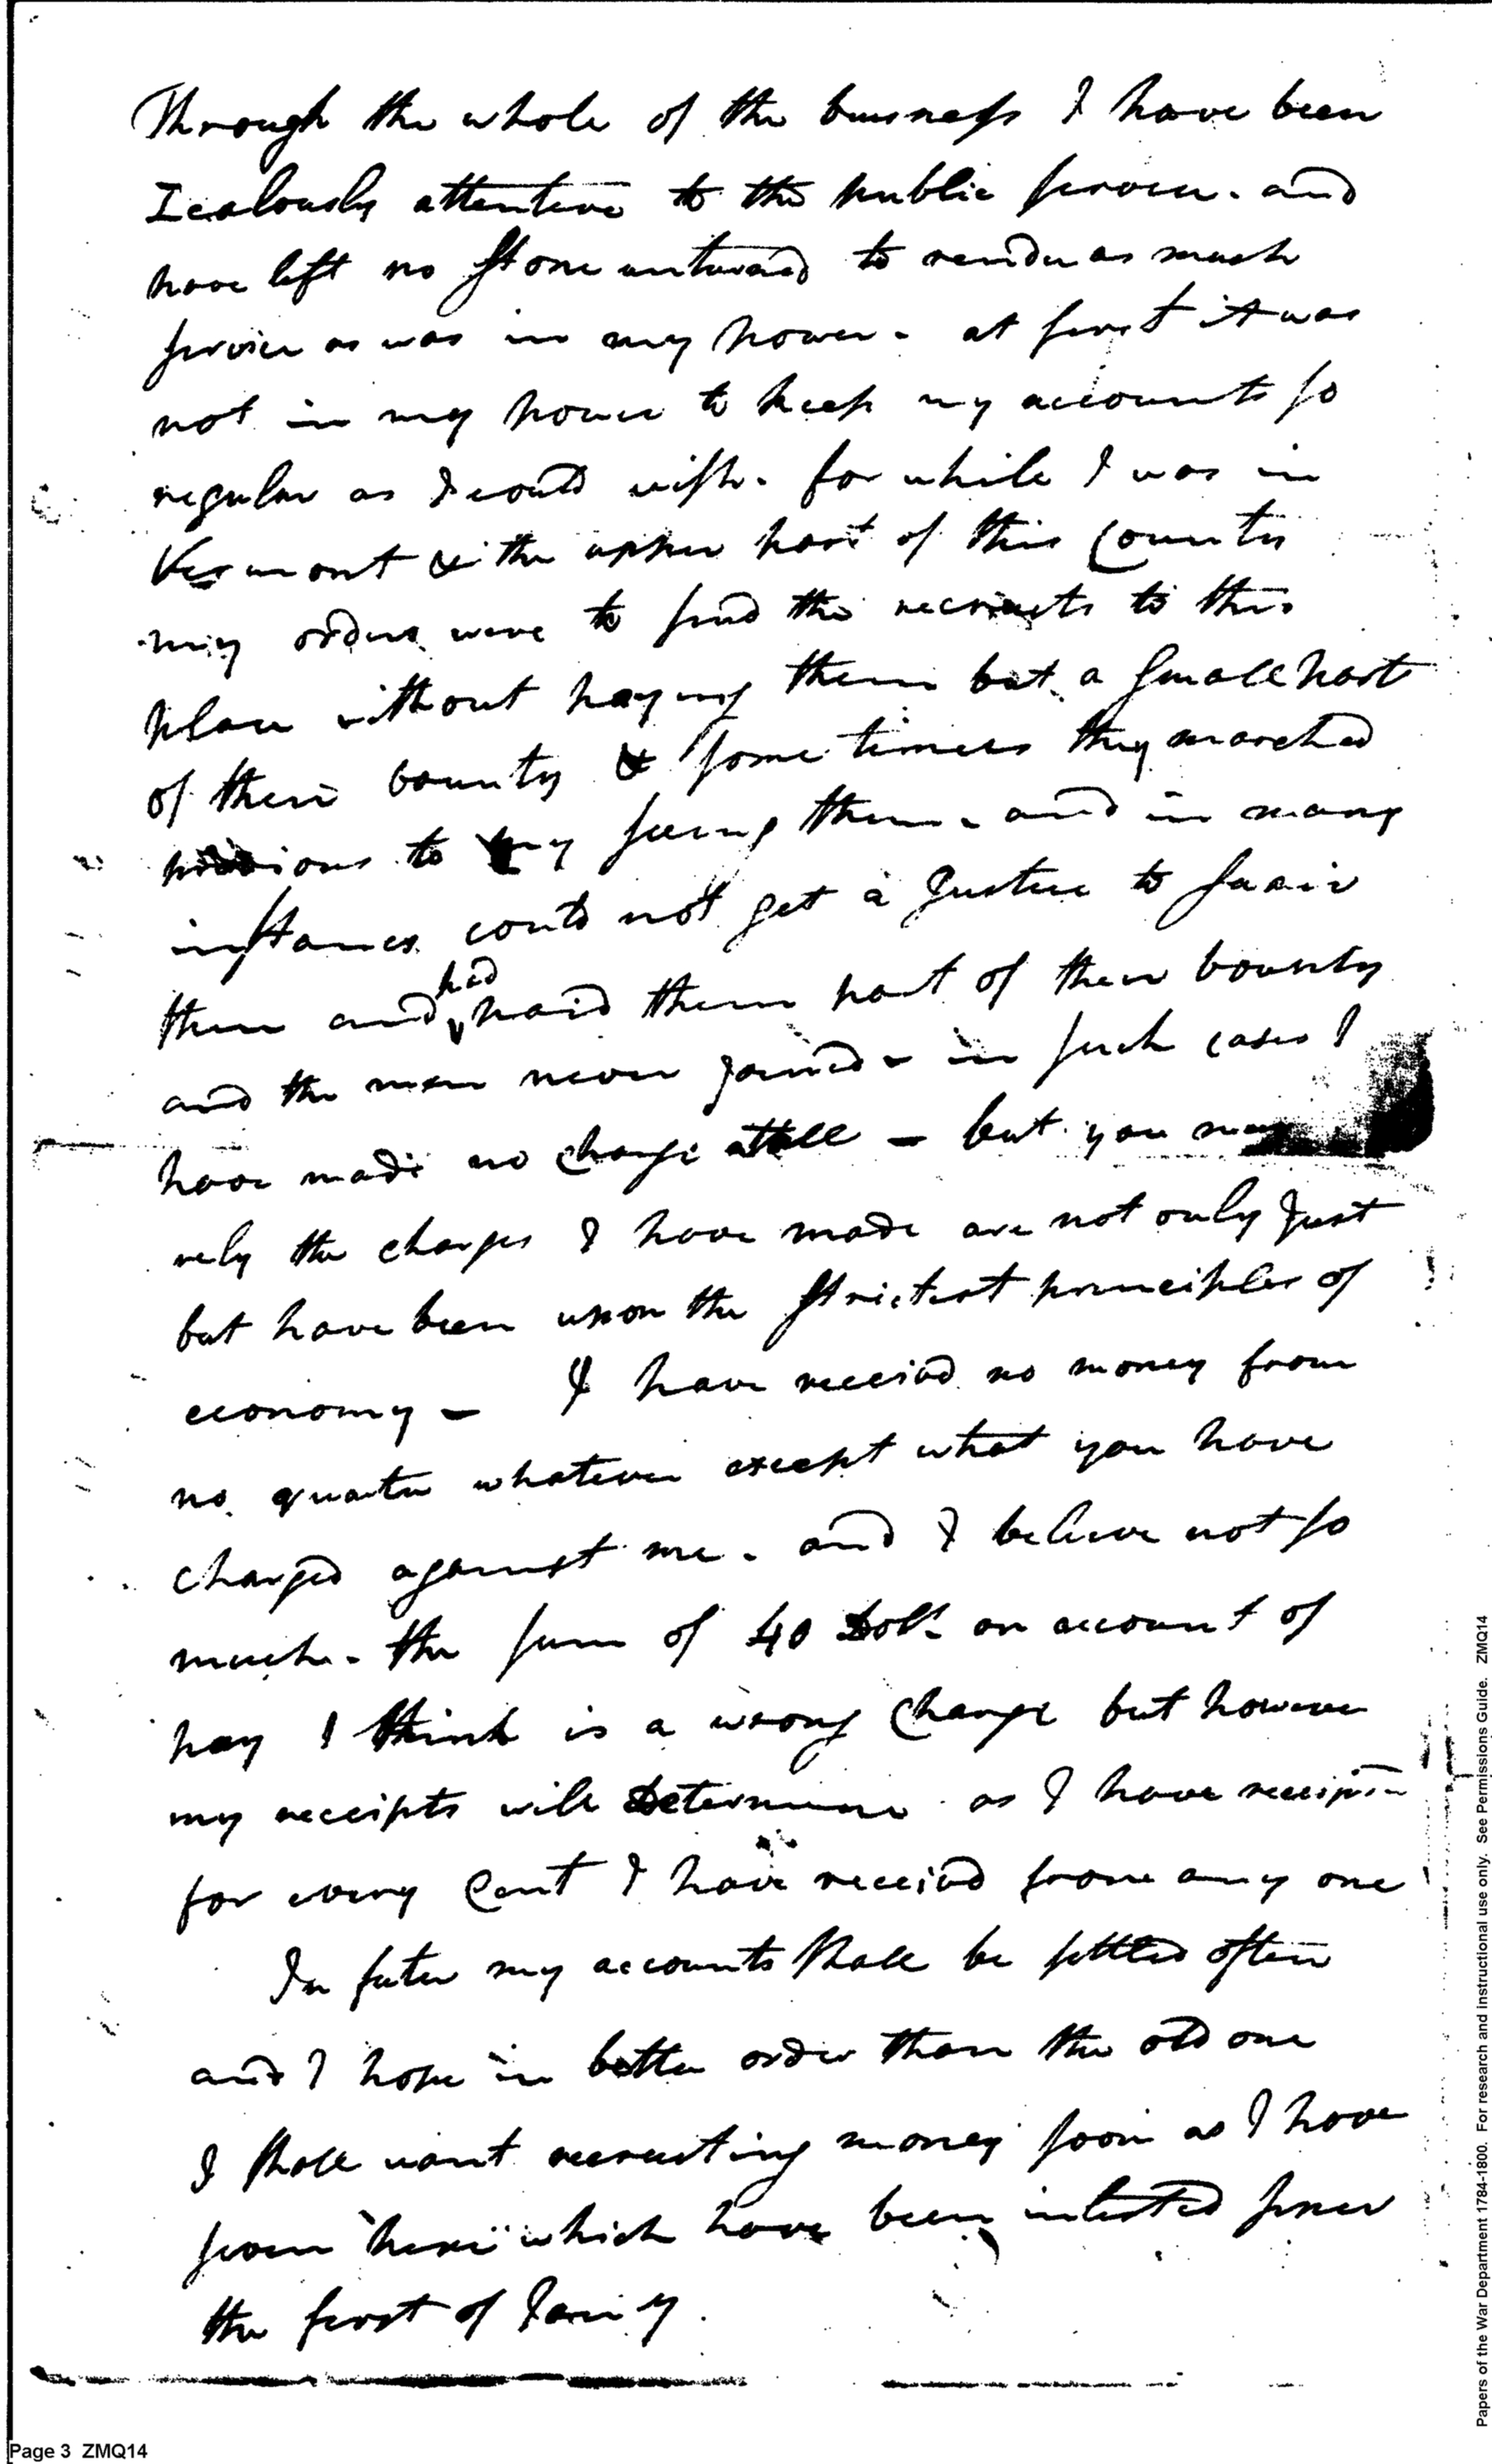 Through the whole of the busness I have been
Zealously attentive to the public service. and
have left no stone unturned to render as much
service as was in my power. at first it was
not in my power to keep my accounts so
regular as I could wish. for while I was in
Vermont & the upper part of this County
my orders were to send the recruits to this
place without paying them but a small part
of their bounty & some times they marched
previous to my seeing them. and in many
instances could not get a Justice to swair
them and had paid them part of their bounty
and the men never joined - in such cases I
have made no charge attall - but you may
rely the charges I have made are not only Just
but have been upon the strictest principles of
economy - I have receivd no money from
no quarter whatever except what you have
charged against me. and I believe not so
much. the sum of 40 Dolls on account of
pay I think is a wrong charge but however
my receipts will Determine as I have receipts
for every Cent I have receivd from any one
In futer my accounts shall be settled often
and I hope in better order than the old one
I shall want recruiting money soon as I have
seven here which have been inlisted since
the first of Jany.
Page 3 ZMQ14
Papers of the War Department 1784-1800. For research and instructional use only. See Permissions Guide. ZMQ14